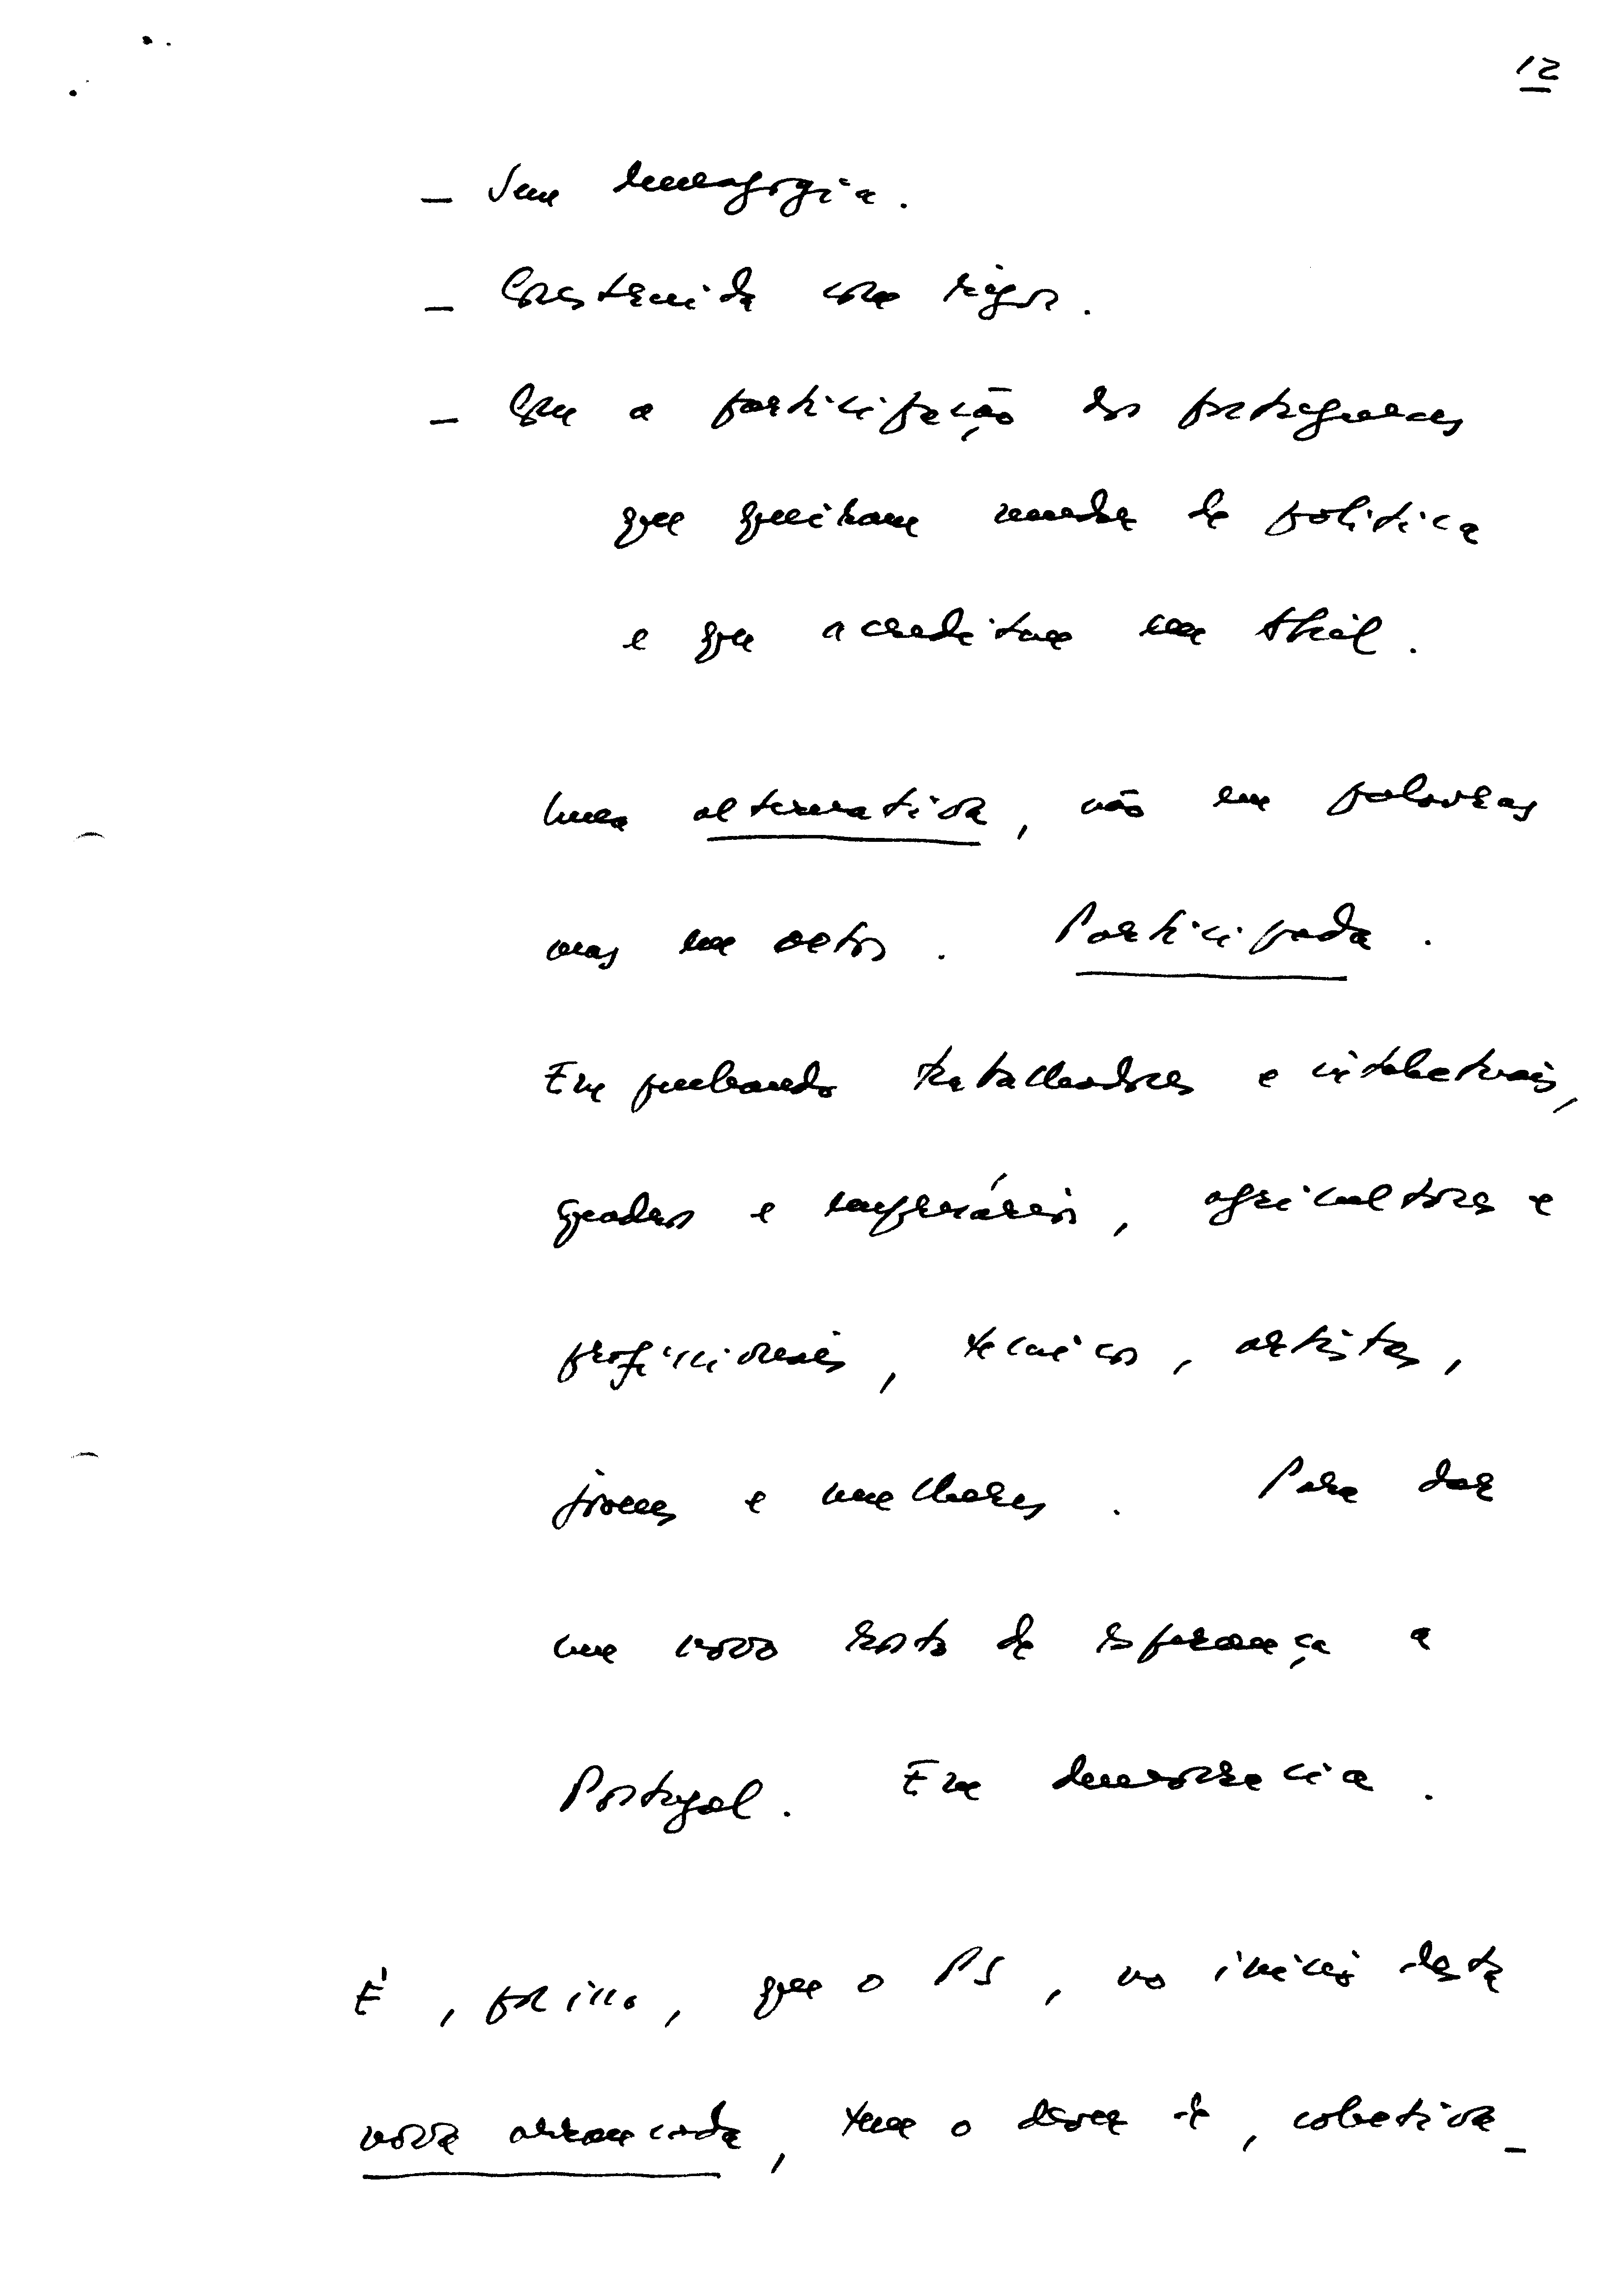 12
– Sem demagogia.
– Construida com rigor.
– Com a participação dos portugueses
que queiram mudar de politica
e que acreditam em Abril.
Uma alternativa, não em palavras
mas em actos. Participada.
Empenhando trabalhadores e intelectuais,
quadros e empresários, agricultores e
profissionais, tecnicos, artistas,
jovens e mulheres. Para dar
um novo rosto de esperança a
Portugal. Em democracia.
É, por isso, que o PS, no inicio desta
nova arrancada, tem o dever de, colectiva-